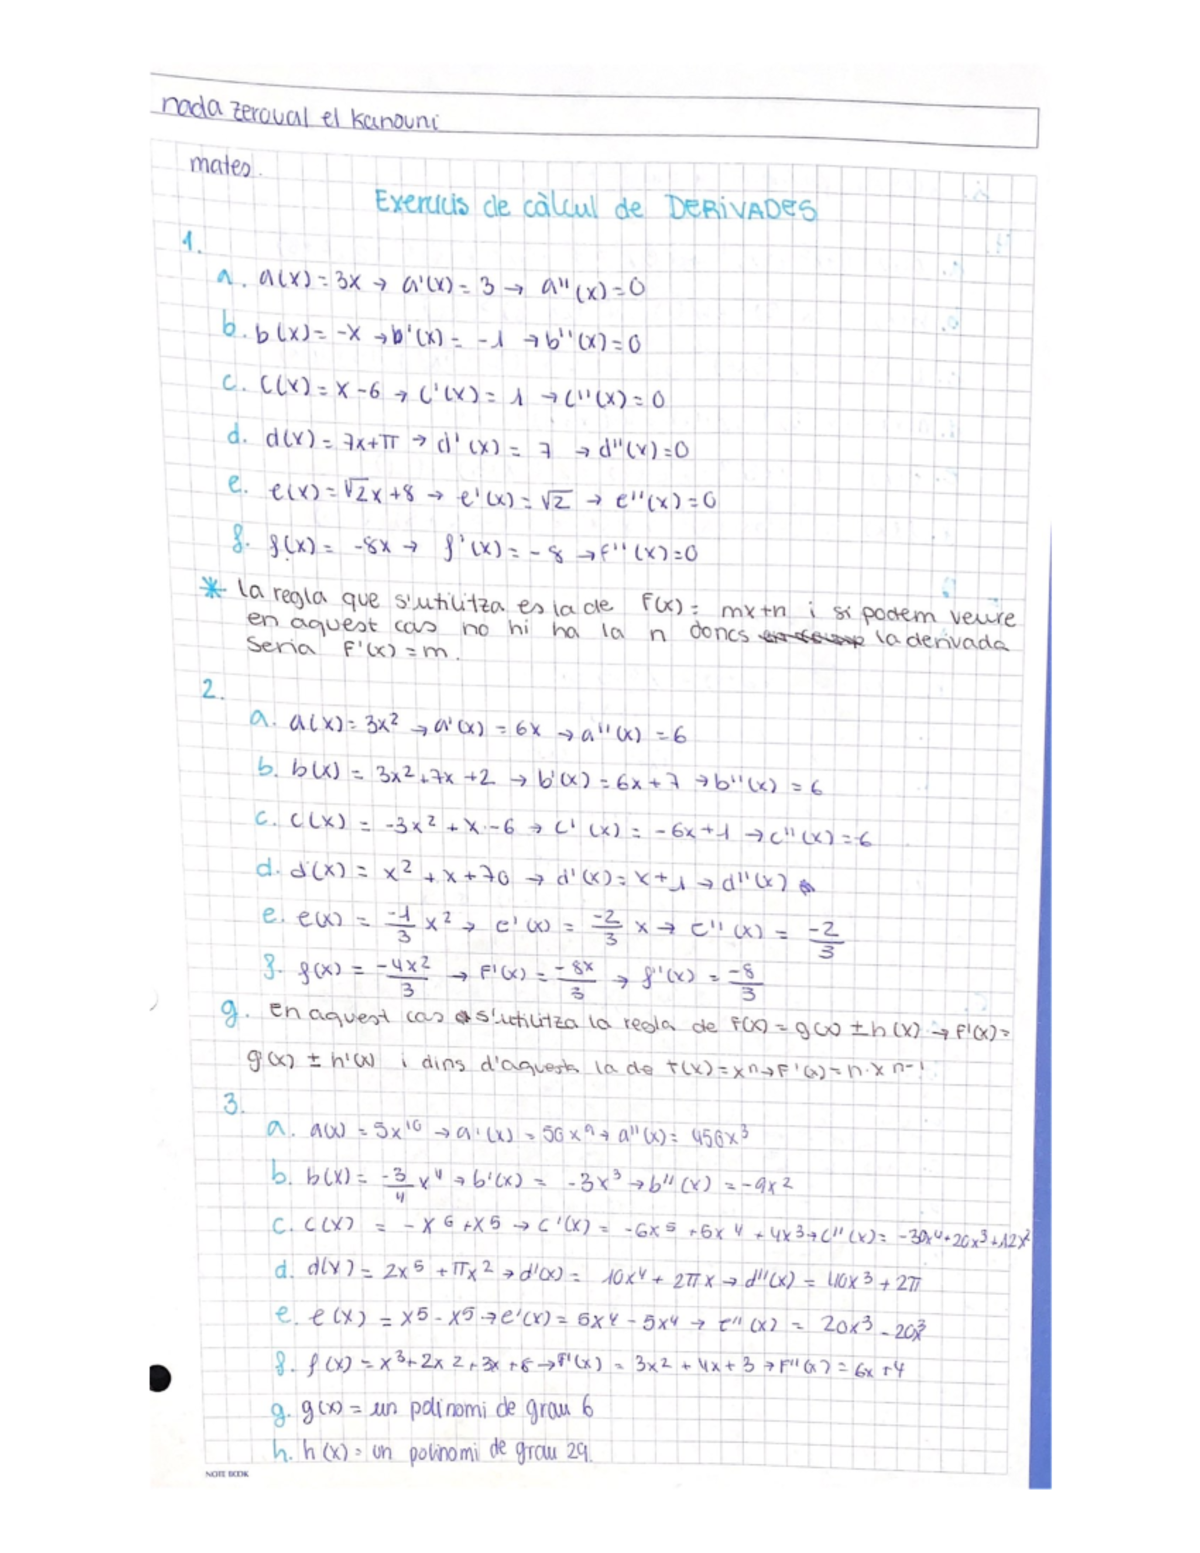 nada zeroual el kanouni
mates.
Exercicis de càlcul de DERIVADES
1.
a. a(x) = 3x → a'(x) = 3 → a''(x) = 0
b. b(x) = -x → b'(x) = -1 → b''(x) = 0
c. c(x) = x - 6 → c'(x) = 1 → c''(x) = 0
d. d(x) = 7x + π → d'(x) = 7 → d''(x) = 0
e. e(x) = √2x + 8 → e'(x) = √2 → e''(x) = 0
f. f(x) = -8x → f'(x) = -8 → f''(x) = 0
* la regla que s'utilitza es la de F(x) = mx+n i si podem veure
en aquest cas no hi ha la n doncs la derivada
seria F'(x) = m.
2.
a. a(x) = 3x² → a'(x) = 6x → a''(x) = 6
b. b(x) = 3x² + 7x + 2 → b'(x) = 6x + 7 → b''(x) = 6
c. c(x) = -3x² + x - 6 → c'(x) = -6x + 1 → c''(x) = -6
d. d(x) = x² + x + 70 → d'(x) = x + 1 → d''(x)
e. e(x) = -1/3 x² → e'(x) = -2/3 x → e''(x) = -2/3
f. f(x) = -4x²/3 → F'(x) = -8x/3 → f''(x) = -8/3
g. en aquest cas s'utilitza la regla de F(x) = g(x) ± h(x) → F'(x) =
g'(x) ± h'(x) i dins d'aquesta la de f(x) = xⁿ → F'(x) = n·xⁿ⁻¹
3.
a. a(x) = 5x¹⁰ → a'(x) = 50x⁹ → a''(x) = 450x³
b. b(x) = -3/4 x⁴ → b'(x) = -3x³ → b''(x) = -9x²
c. c(x) = -x⁶ + x⁵ → c'(x) = -6x⁵ + 5x⁴ + 4x³ → c''(x) = -30x⁴ + 20x³ + 12x²
d. d(x) = 2x⁵ + πx² → d'(x) = 10x⁴ + 2πx → d''(x) = 40x³ + 2π
e. e(x) = x⁵ - x⁵ → e'(x) = 5x⁴ - 5x⁴ → e''(x) = 20x³ - 20x³
f. f(x) = x³ + 2x² + 3x + 6 → f'(x) = 3x² + 4x + 3 → F''(x) = 6x + 4
g. g(x) = un polinomi de grau 6
h. h(x) = un polinomi de grau 29.
NOTE BOOK